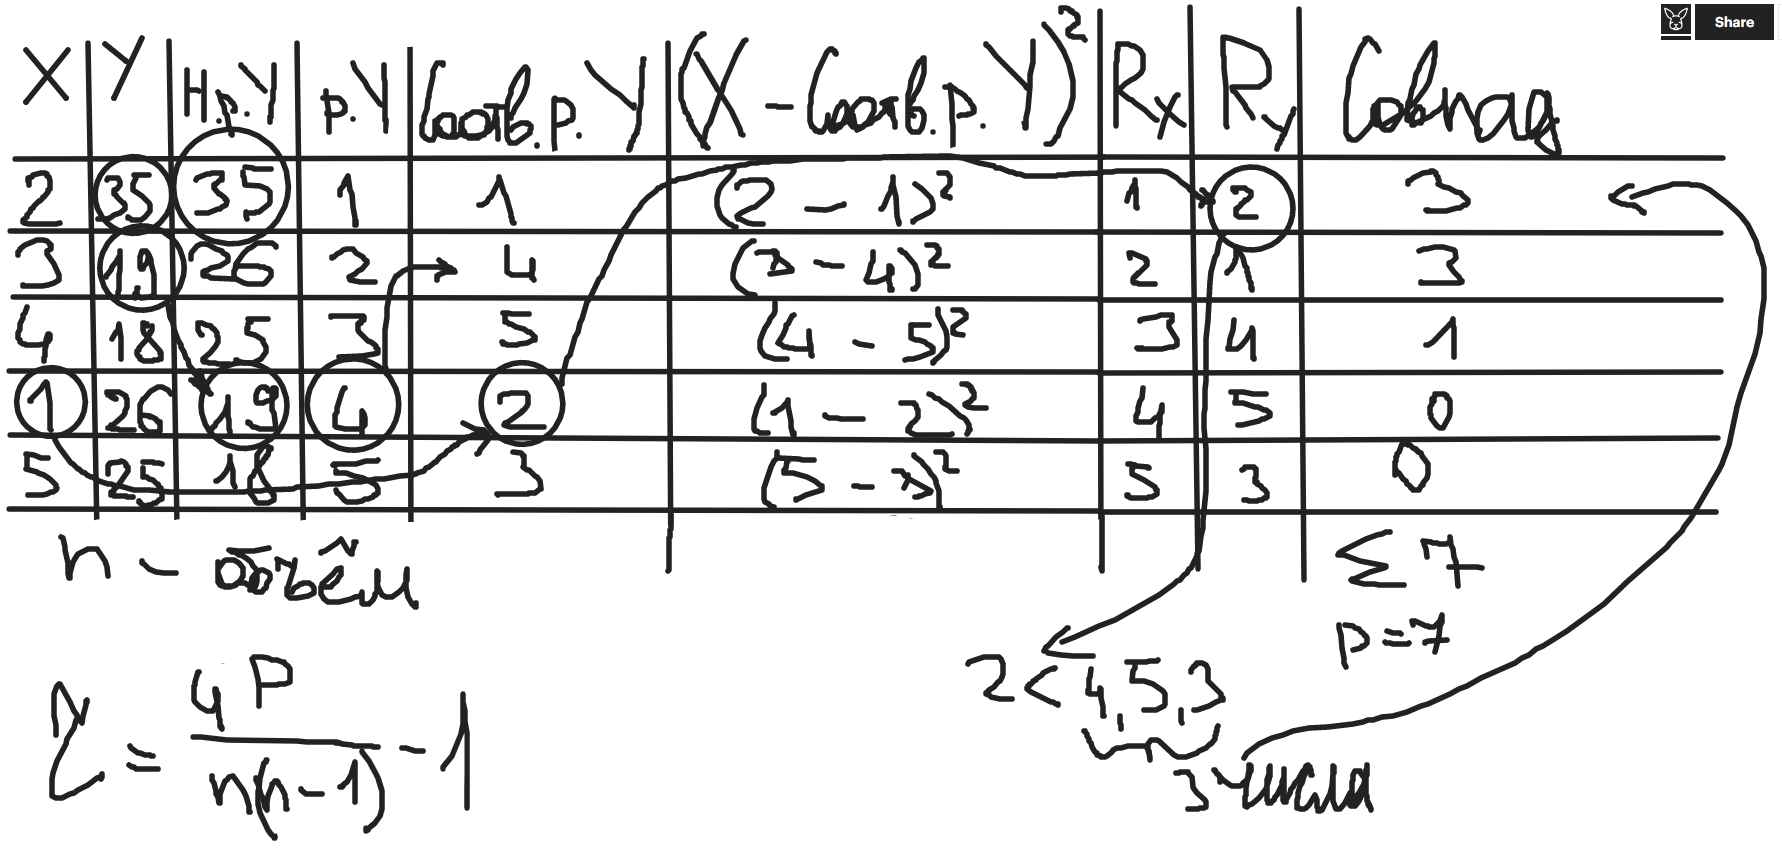 Share
X Y Н.р.Y р.Y Соотв.р.Y (X - Соотв.р.Y)² Rx Ry Совпад
2 35 35 1 1 (2 - 1)² 1 2 3
3 19 26 2 4 (3 - 4)² 2 1 3
4 18 25 3 5 (4 - 5)² 3 4 1
1 26 19 4 2 (1 - 2)² 4 5 0
5 25 18 5 3 (5 - 3)² 5 3 0
n - объём
Σ 7
p = 7
2 < 4, 5, 3
3 числа
= 4P / n(n - 1) - 1